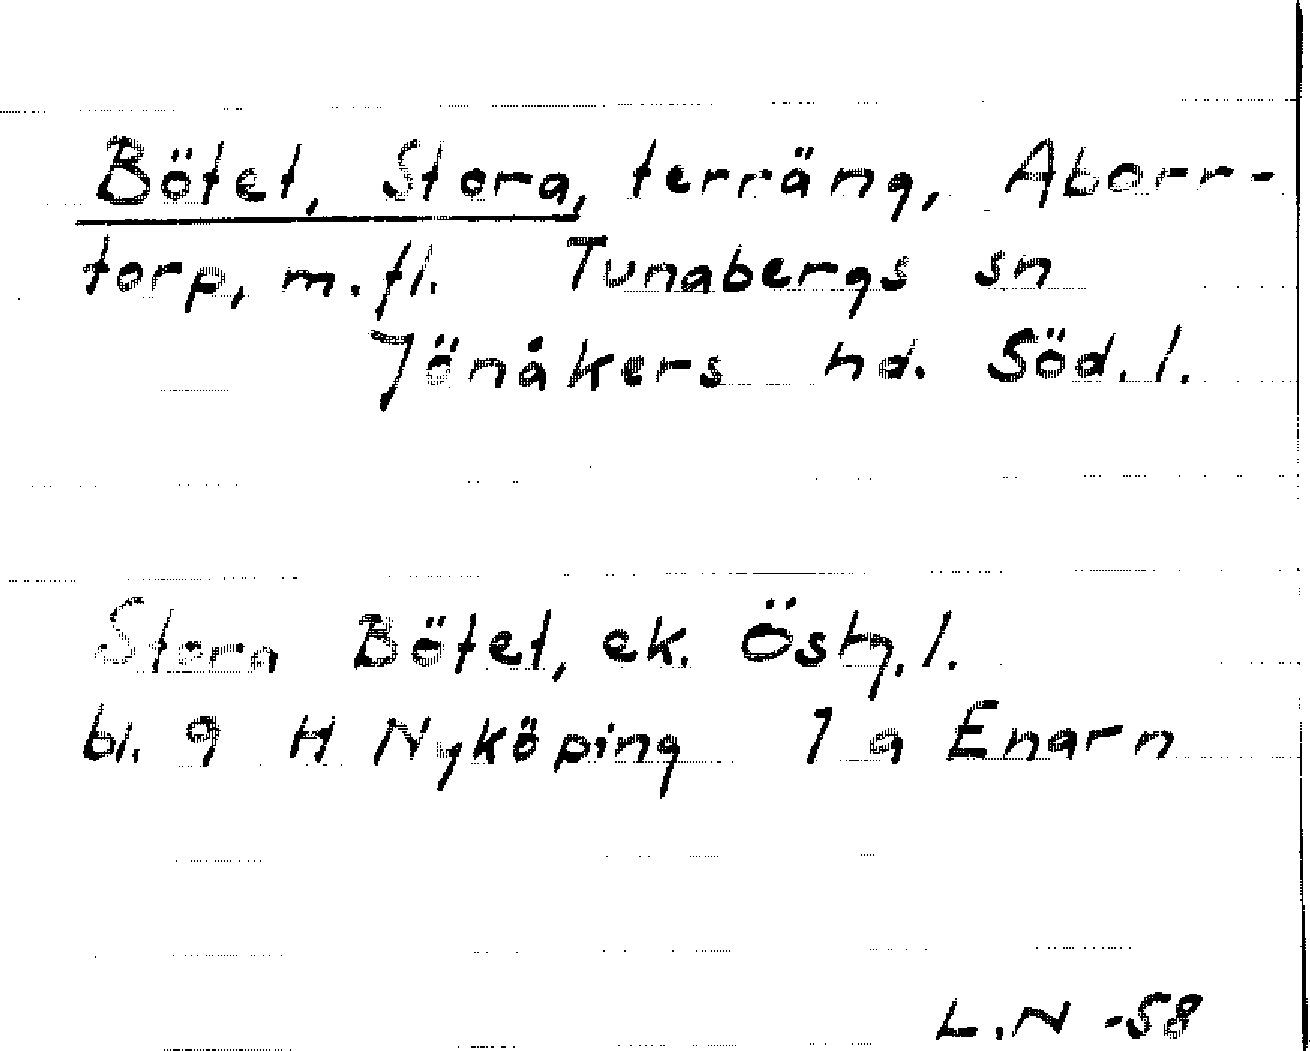 Bötet, Stora, terräng, Aborr-
torp, m.fl. Tunabergs sn
Jönåkers hd. Söd. l.
Stora Bötet, ek. Östg. l.
bl. 9 H Nyköping 7 a Enarn
L.N -58